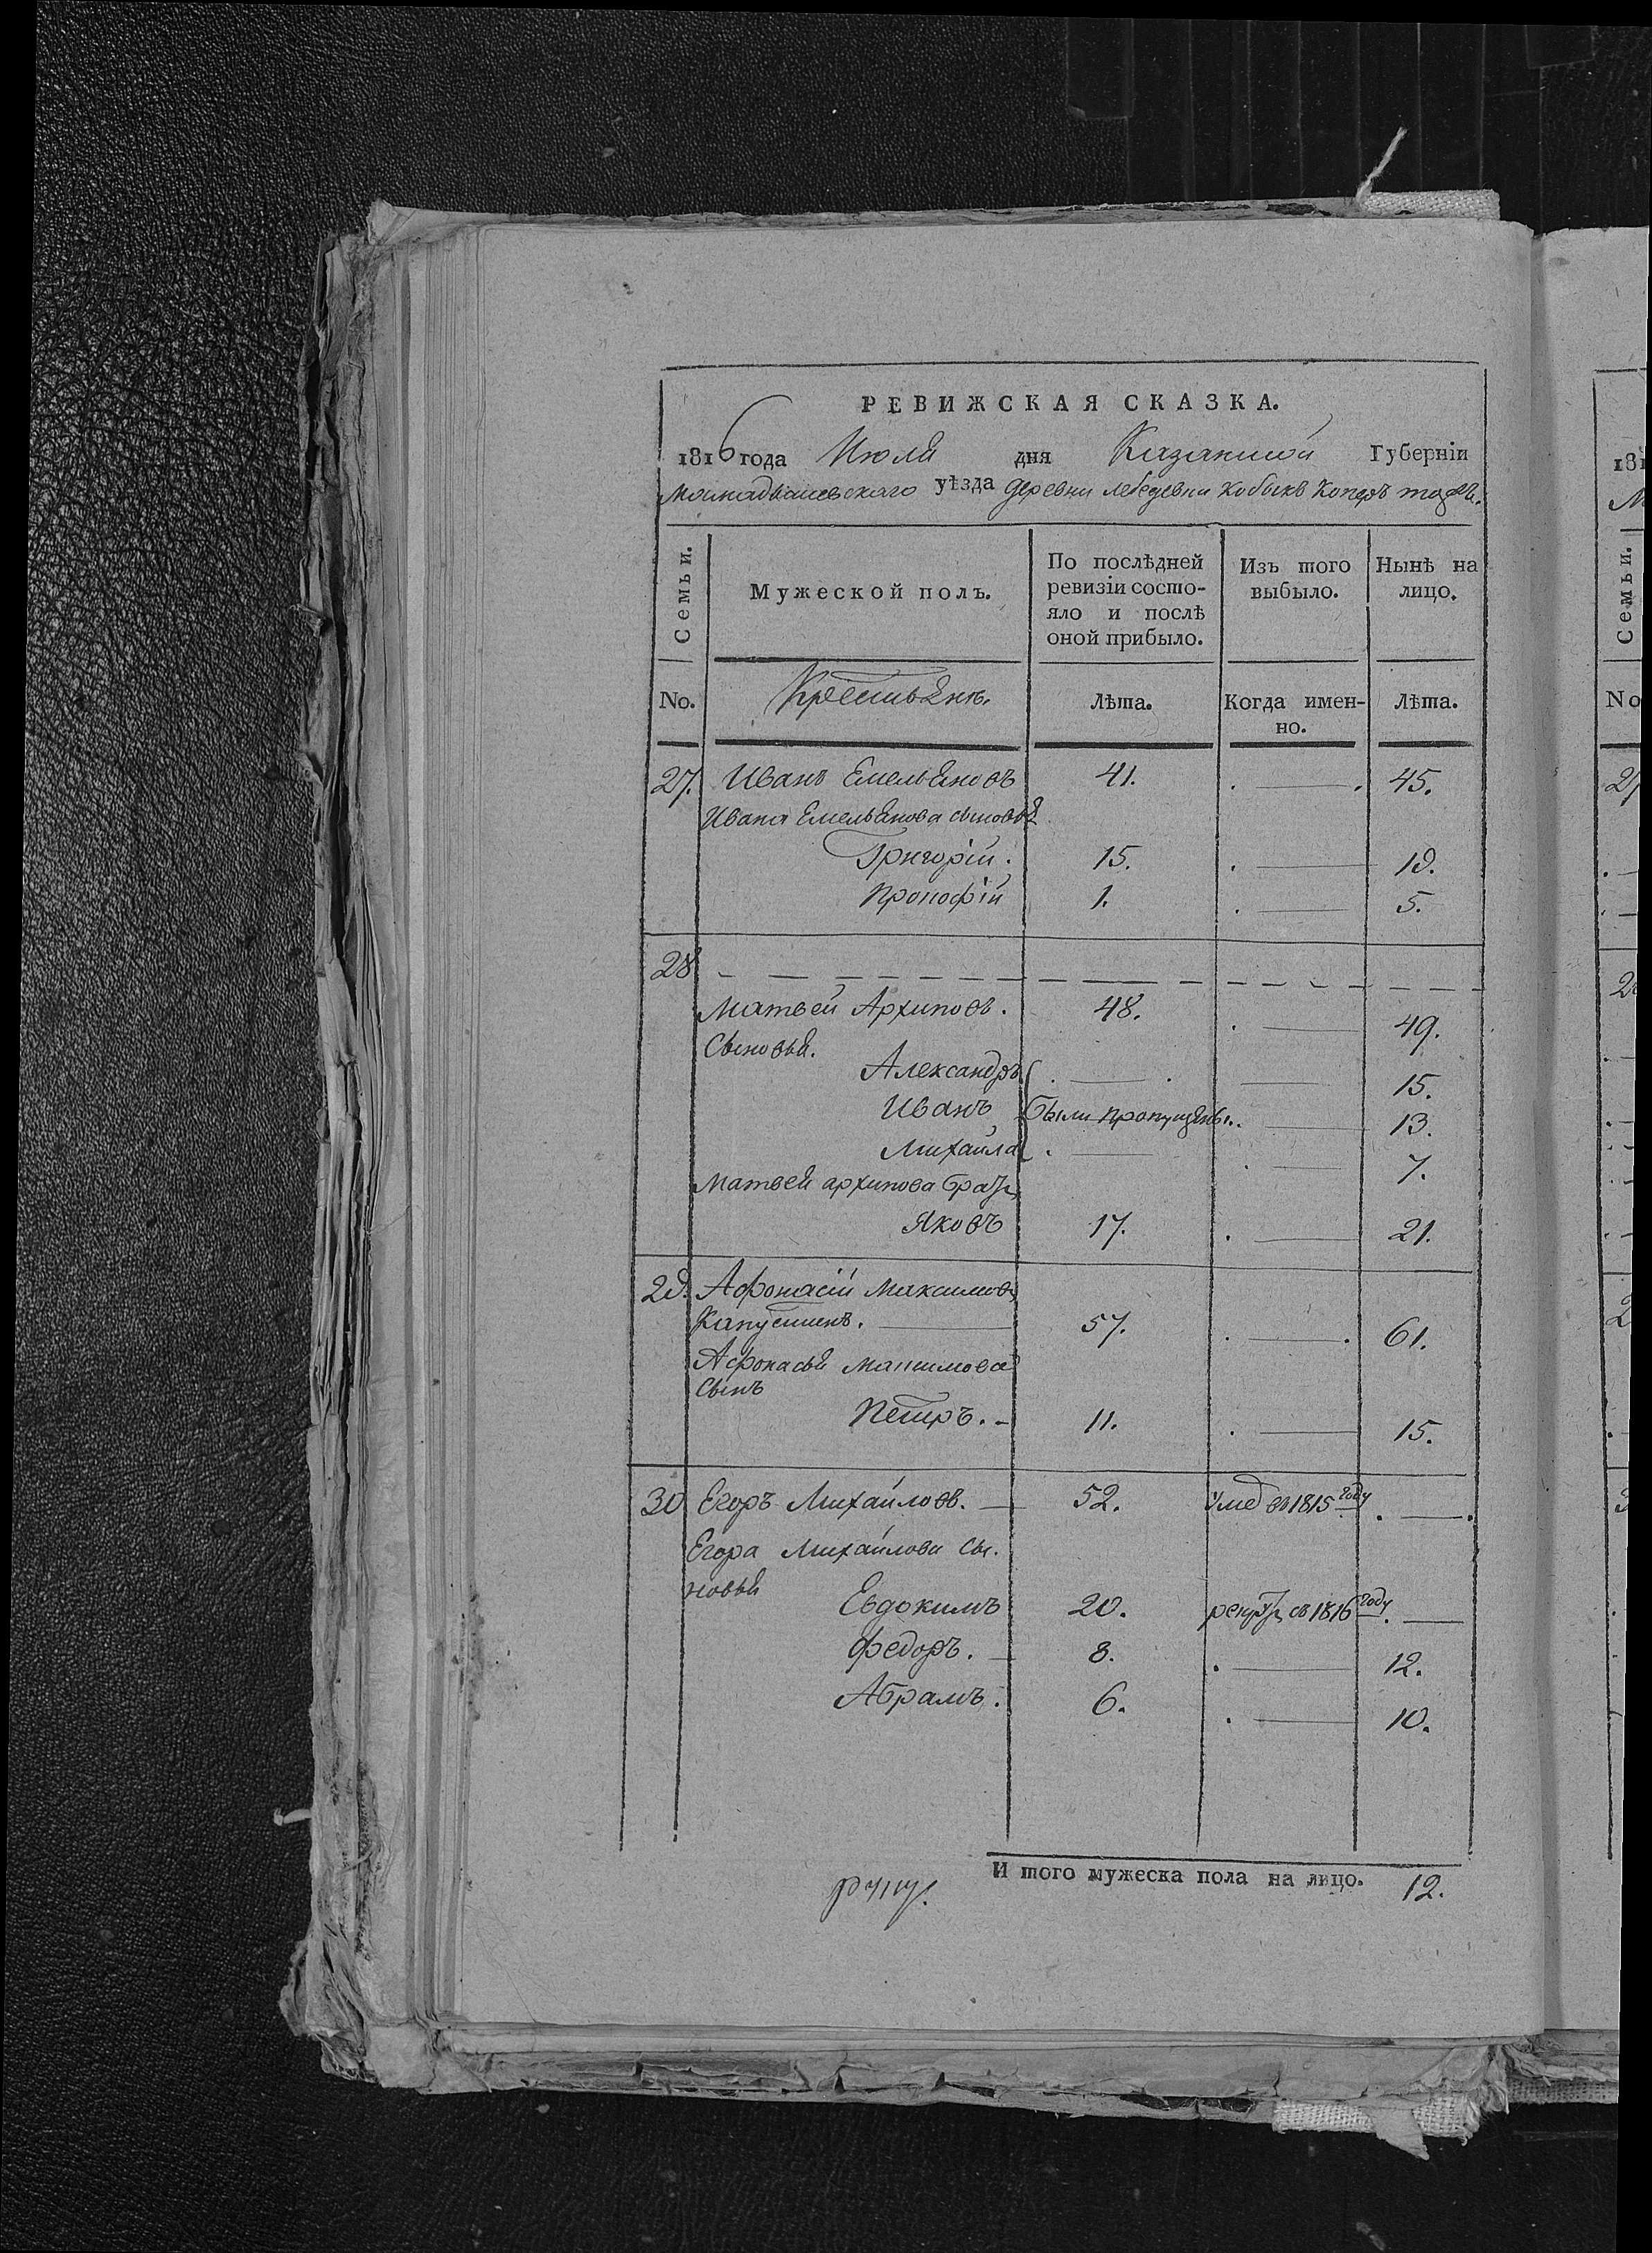 РЕВИЖСКАЯ СКАЗКА.
1816 года Июля дня Казанской Губерніи
уѣзда деревни лебедевки
Семьи.
Мужеской полъ.
По послѣдней ревизіи состо-
яло и послѣ
оной прибыло.
Изъ того
выбыло.
Нынѣ на
лицо.
No.
Крестьянѣ.
Лѣта.
Когда имен-
но.
Лѣта.
27. Иванъ Емельяновъ 41. 45.
Ивана Емельянова сыновья
Григорій. 15. 19.
Прокофій 1. 5.
28
Матвей Архиповъ. 48. 49.
Сыновья.
Александръ 15.
Иванъ были пропущены. 13.
Михайла 7.
Матвея архипова братъ
Яковъ 17. 21.
29. Афонасій Максимовъ
Капустинъ. 57. 61.
Афонасья Максимова
сынъ
Петръ. 11. 15.
30 Егоръ Михайловъ. 52. умеръ въ 1815 году
Егора Михайлова сы-
новья
Евдокимъ 20. рекрутъ въ 1816 году.
Федоръ. 8. 12.
Абрамъ. 6. 10.
И того мужеска пола на лицо. 12.
181
Семьи.
No